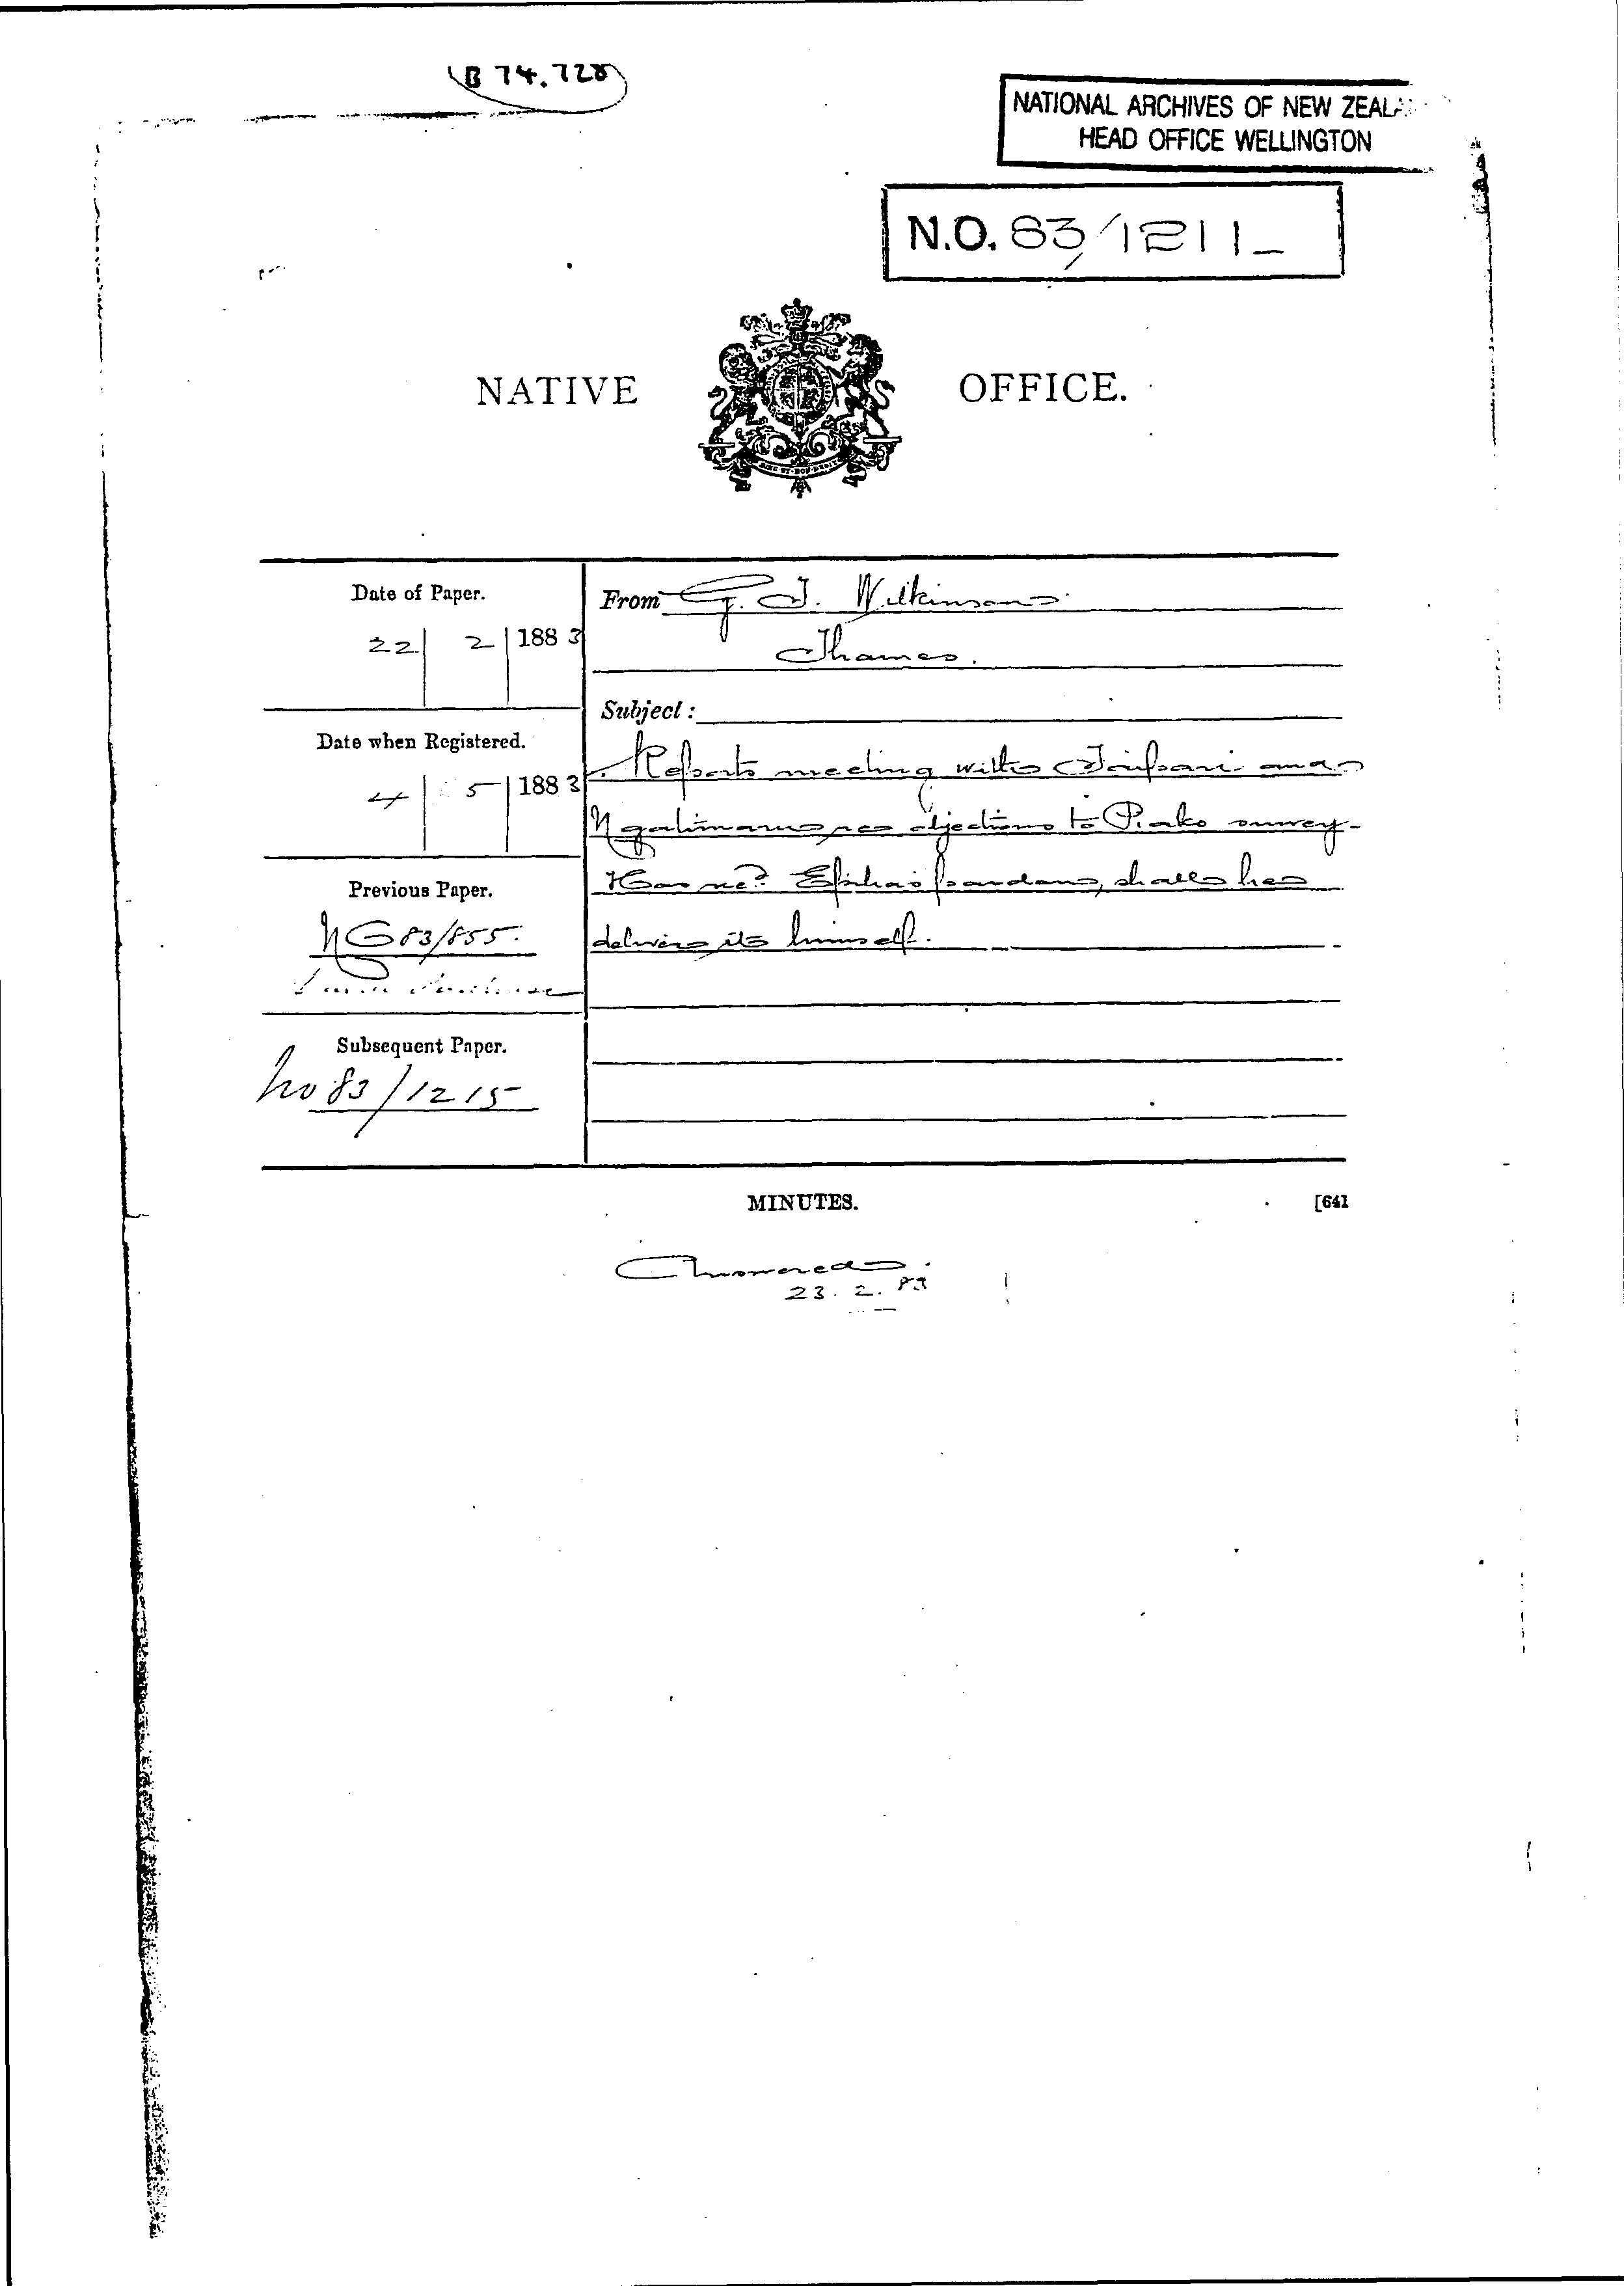 B 74.728
NATIONAL ARCHIVES OF NEW ZEALA
HEAD OFFICE WELLINGTON
N.O. 83/1211
NATIVE OFFICE.
Date of Paper.
22 | 2 | 1883
From G. T. Wilkinson
Thames.
Subject:
Date when Registered.
4 | 5 | 1883
Reports meeting with Taipari and
Ngatimaru re objections to Piako survey-
Has recd. Epiha's pardon, shall he
deliver it himself.
Previous Paper.
NO 83/855.
Subsequent Paper.
no 83/1215
MINUTES.
[641
Answered
23. 2. 83